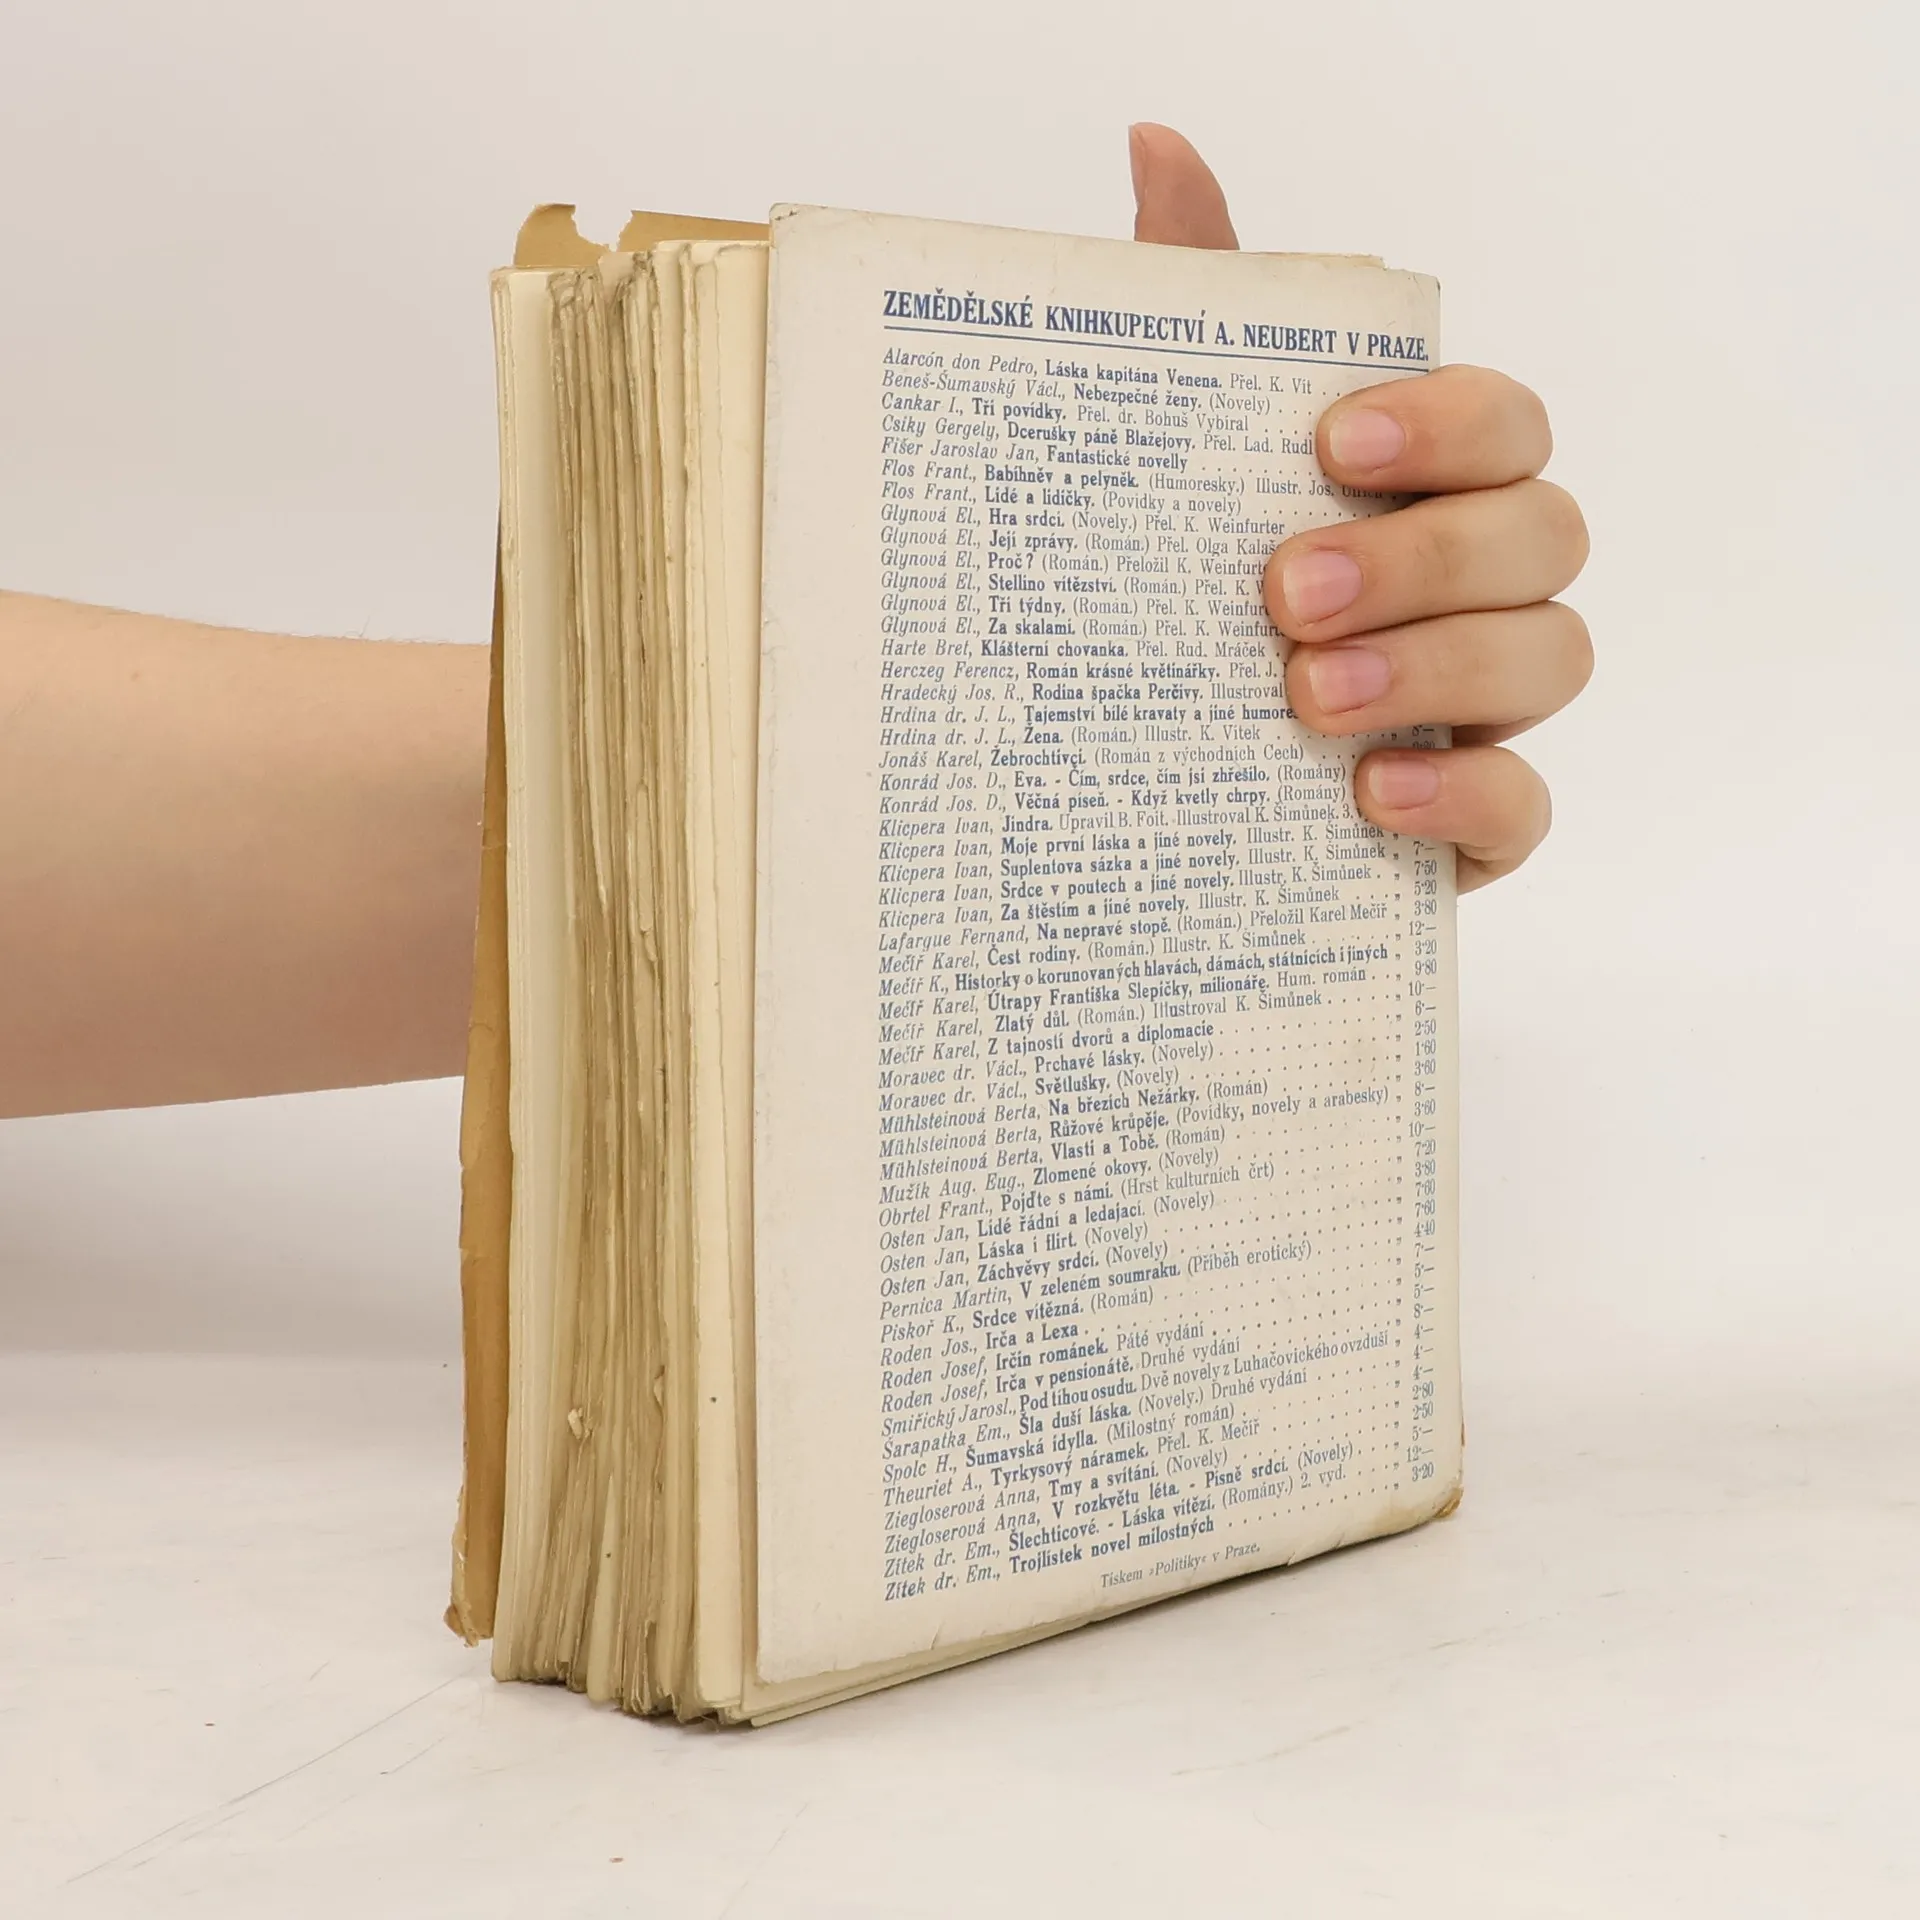 ZEMĚDĚLSKÉ KNIHKUPECTVÍ A. NEUBERT V PRAZE.
Alarcón don Pedro, Láska kapitána Venena. Přel. K. Vít . .
Beneš-Šumavský Václ., Nebezpečné ženy. (Novely) . . .
Cankar I., Tři povídky. Přel. dr. Bohuš Vybíral . . . .
Csiky Gergely, Dcerušky páně Blažejovy. Přel. Lad. Rudl
Fišer Jaroslav Jan, Fantastické novelly . . . . . . . .
Flos Frant., Babíhněv a pelyněk. (Humoresky.) Illustr. Jos. Ullrich .
Flos Frant., Lidé a lidičky. (Povídky a novely) . . . . . . .
Glynová El., Hra srdcí. (Novely.) Přel. K. Weinfurter .
Glynová El., Její zprávy. (Román.) Přel. Olga
Glynová El., Proč? (Román.) Přeložil K.
Glynová El., Stellino vítězství. (Román.) Přel. K.
Glynová El., Tři týdny. (Román.) Přel. K.
Glynová El., Za skalami. (Román.) Přel. K.
Harte Bret, Klášterní chovanka. Přel. Rud. Mráček .
Herczeg Ferencz, Román krásné květinářky. Přel. J.
Hradecký Jos. R., Rodina špačka Perčivy. Illustroval
Hrdina dr. J. L., Tajemství bílé kravaty a jiné
Hrdina dr. J. L., Žena. (Román.) Illustr. K. Vítek . . . . . . . „ 8·—
Jonáš Karel, Žebrochtivci. (Román z východních Čech) . . .
Konrád Jos. D., Eva. - Čím, srdce, čím jsi zhřešilo. (Romány)
Konrád Jos. D., Věčná píseň. - Když kvetly chrpy. (Romány)
Klicpera Ivan, Jindra. Upravil B. Foit. Illustroval K. Šimůnek. 3.
Klicpera Ivan, Moje první láska a jiné novely. Illustr. K. Šimůnek „ 7·—
Klicpera Ivan, Suplentova sázka a jiné novely. Illustr. K. Šimůnek „ 7·50
Klicpera Ivan, Srdce v poutech a jiné novely. Illustr. K. Šimůnek . „ 5·20
Klicpera Ivan, Za štěstím a jiné novely. Illustr. K. Šimůnek . . . „ 3·80
Lafargue Fernand, Na nepravé stopě. (Román.) Přeložil Karel Mečíř „ 12·—
Mečíř Karel, Čest rodiny. (Román.) Illustr. K. Šimůnek . . . . . . „ 3·20
Mečíř K., Historky o korunovaných hlavách, dámách, státnících i jiných „ 9·80
Mečíř Karel, Útrapy Františka Slepičky, milionáře. Hum. román . . „ 10·—
Mečíř Karel, Zlatý důl. (Román.) Illustroval K. Šimůnek . . . . . „ 6·—
Mečíř Karel, Z tajností dvorů a diplomacie . . . . . . . . . . . „ 2·50
Moravec dr. Václ., Prchavé lásky. (Novely) . . . . . . . . . . . „ 1·60
Moravec dr. Václ., Světlušky. (Novely) . . . . . . . . . . . . . „ 3·60
Mühlsteinová Berta, Na březích Nežárky. (Román) . . . . . . . . „ 8·—
Mühlsteinová Berta, Růžové krůpěje. (Povídky, novely a arabesky) „ 3·60
Mühlsteinová Berta, Vlasti a Tobě. (Román) . . . . . . . . . . „ 10·—
Mužík Aug. Eug., Zlomené okovy. (Novely) . . . . . . . . . . . „ 7·20
Obrtel Frant., Pojďte s námi. (Hrst kulturních črt) . . . . . . . . „ 3·80
Osten Jan, Lidé řádní a ledajací. (Novely) . . . . . . . . . . . „ 7·60
Osten Jan, Láska i flirt. (Novely) . . . . . . . . . . . . . . . „ 7·60
Osten Jan, Záchvěvy srdcí. (Novely) . . . . . . . . . . . . . . „ 4·40
Pernica Martin, V zeleném soumraku. (Příběh erotický) . . . . . . „ 7·—
Piskoř K., Srdce vítězná. (Román) . . . . . . . . . . . . . . . „ 5·—
Roden Jos., Irča a Lexa . . . . . . . . . . . . . . . . . . . . „ 5·—
Roden Josef, Irčin románek. Páté vydání . . . . . . . . . . . . „ 8·—
Roden Josef, Irča v pensionátě. Druhé vydání . . . . . . . . . . „ 4·—
Smiřický Jarosl., Pod tíhou osudu. Dvě novely z Luhačovického ovzduší „ 4·—
Šarapatka Em., Šla duší láska. (Novely.) Druhé vydání . . . . . . „ 4·—
Spolc H., Šumavská idylla. (Milostný román) . . . . . . . . . . . „ 2·80
Theuriet A., Tyrkysový náramek. Přel. K. Mečíř . . . . . . . . . „ 2·50
Ziegloserová Anna, Tmy a svítání. (Novely) . . . . . . . . . . . „ 5·—
Ziegloserová Anna, V rozkvětu léta. - Písně srdcí. (Novely) . . . . „ 12·—
Zítek dr. Em., Šlechticové. - Láska vítězí. (Romány.) 2. vyd. . . . „ 3·20
Zítek dr. Em., Trojlístek novel milostných . . . . . . . . . . .
Tiskem »Politiky« v Praze.